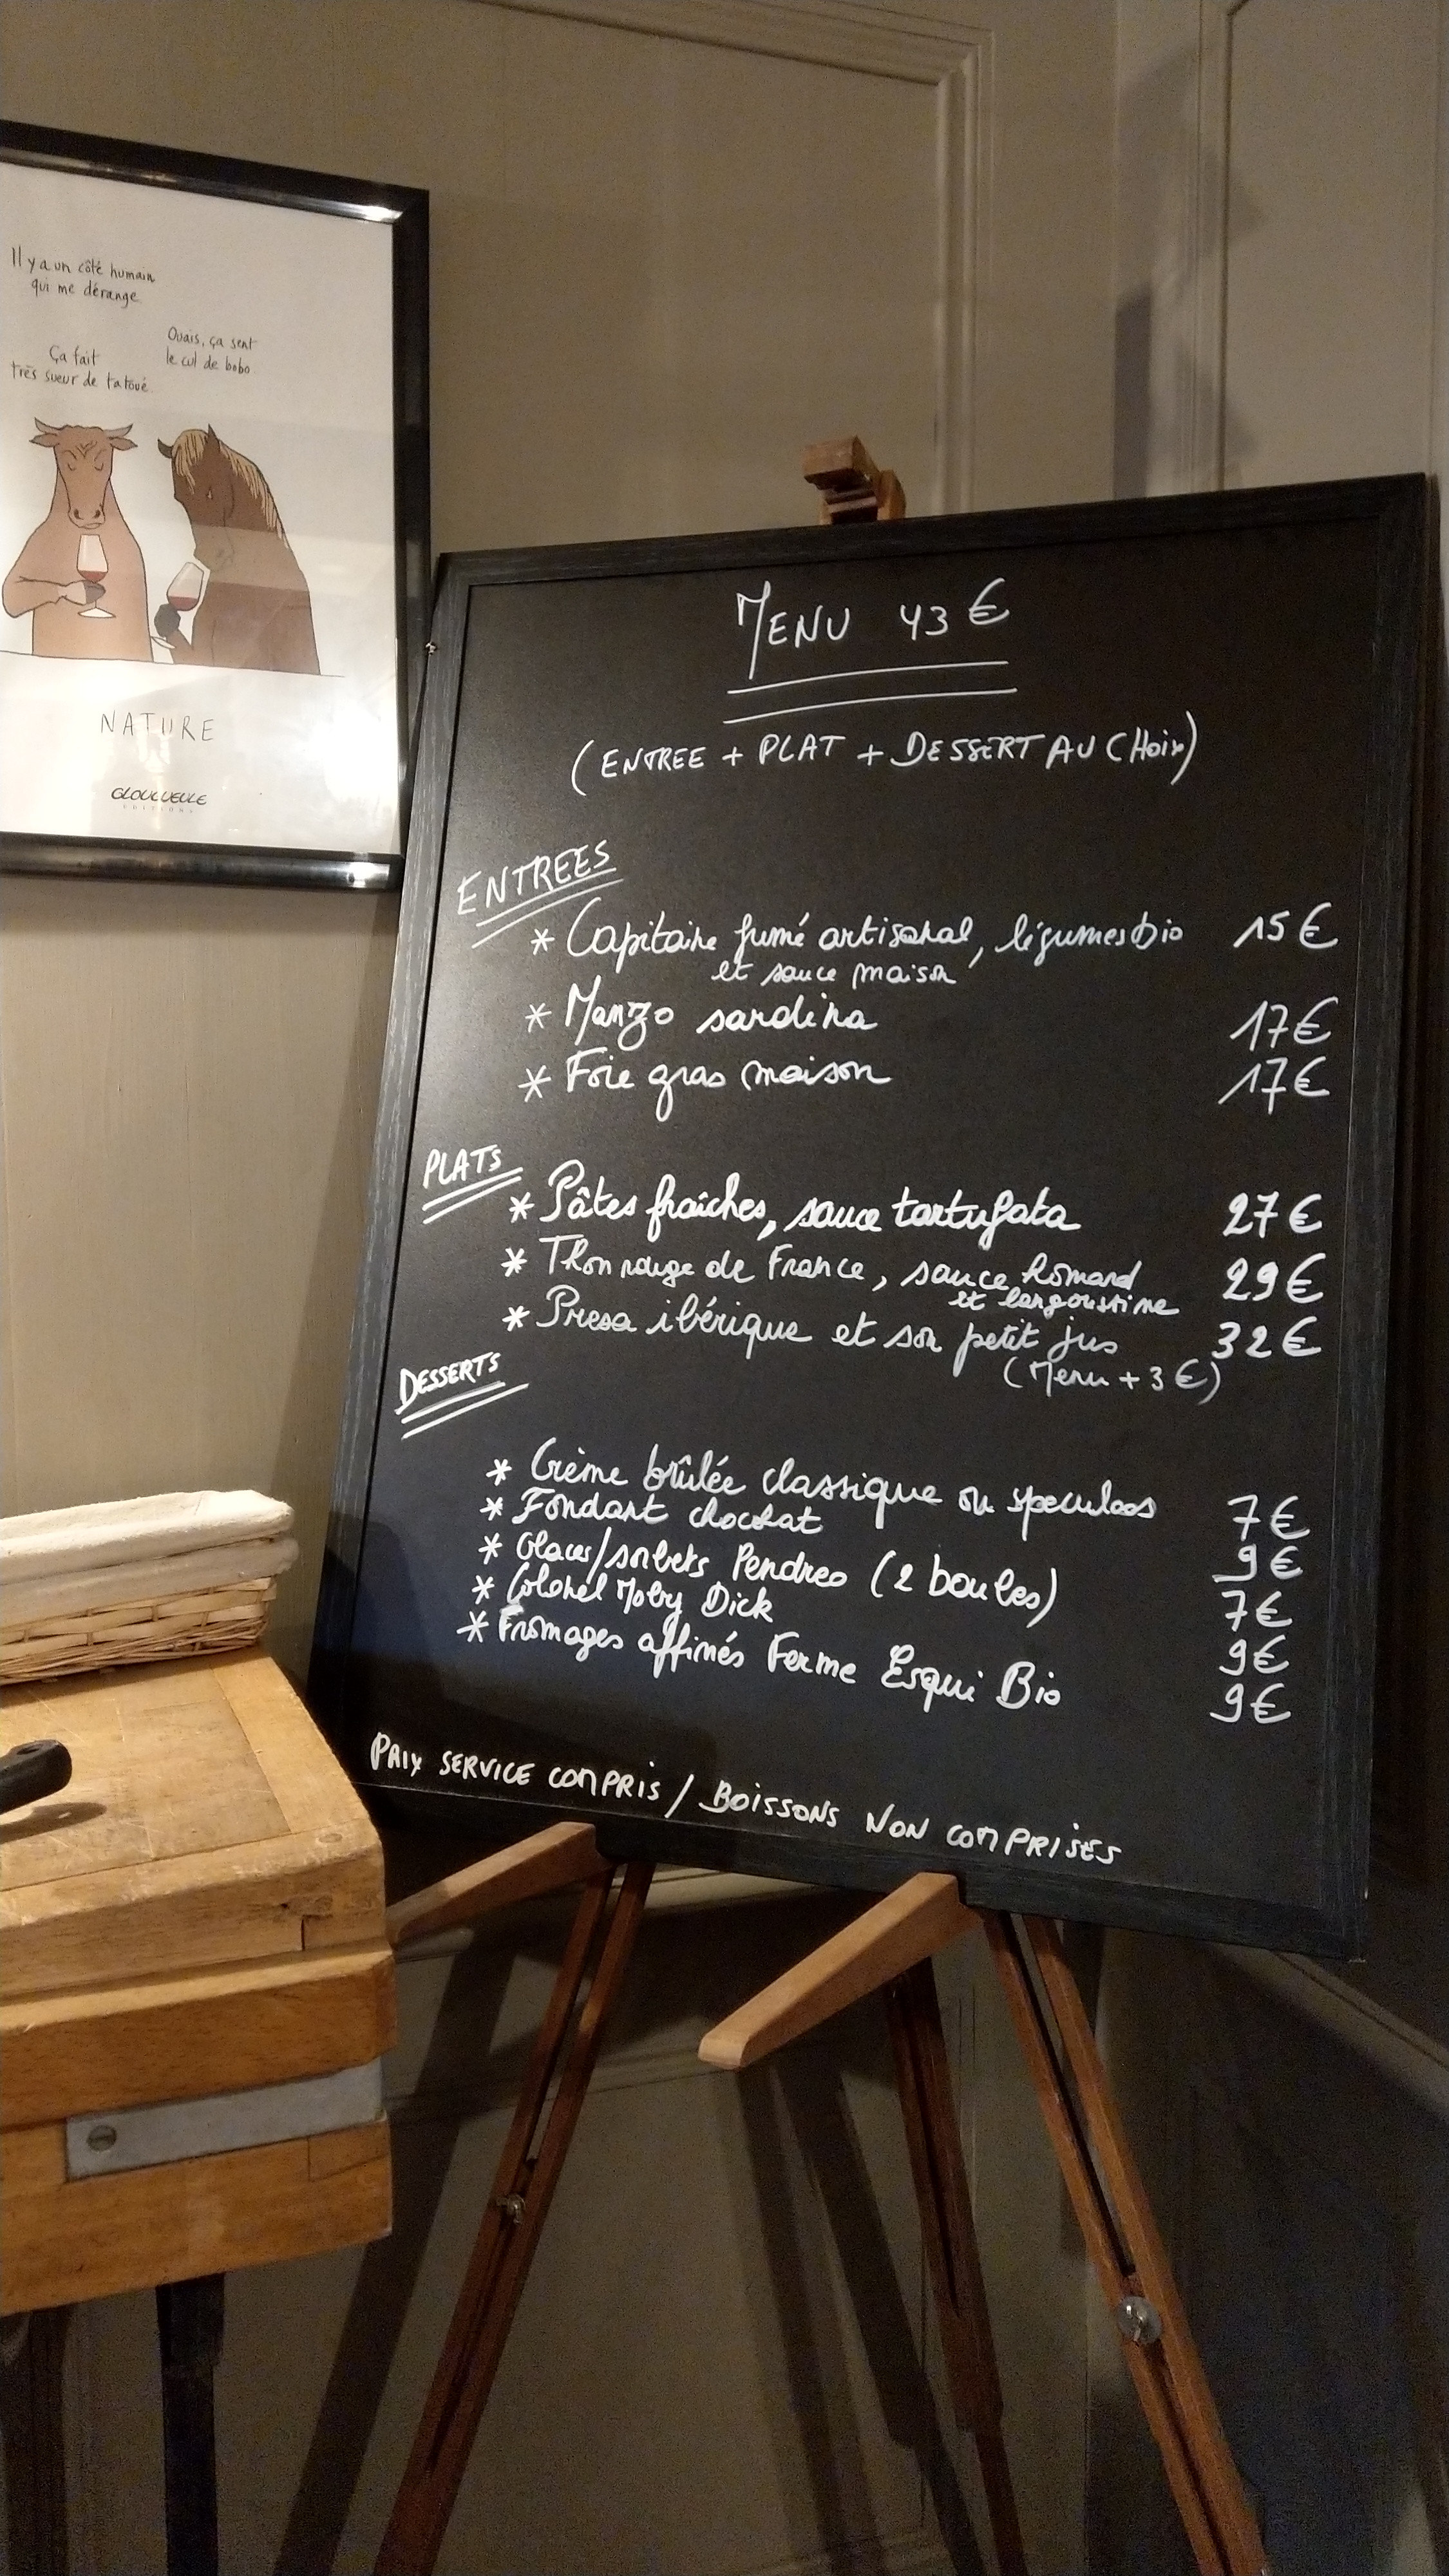 Il y a un côté humain
qui me dérange
Ouais, ça sent
le cul de bobo
Ça fait
très sueur de tatoué
NATURE
GLOUGUEULE
EDITIONS
MENU 43€
(ENTREE + PLAT + DESSERT AU CHOIX)
ENTREES
* Capitaine fumé artisanal, légumes bio 15€
et sauce maison
* Manzo sardina 17€
* Foie gras maison 17€
PLATS
* Pâtes fraîches, sauce tartufata 27€
* Thon rouge de France, sauce homard 29€
et langoustine
* Presa ibérique et son petit jus 32€
(Menu + 3€)
DESSERTS
* Crème brûlée classique ou speculoos 7€
* Fondant chocolat 9€
* Glaces/sorbets Pendres (2 boules) 7€
* Colonel Moby Dick 9€
* Fromages affinés Ferme Esqui Bio 9€
PRIX SERVICE COMPRIS / BOISSONS NON COMPRISES